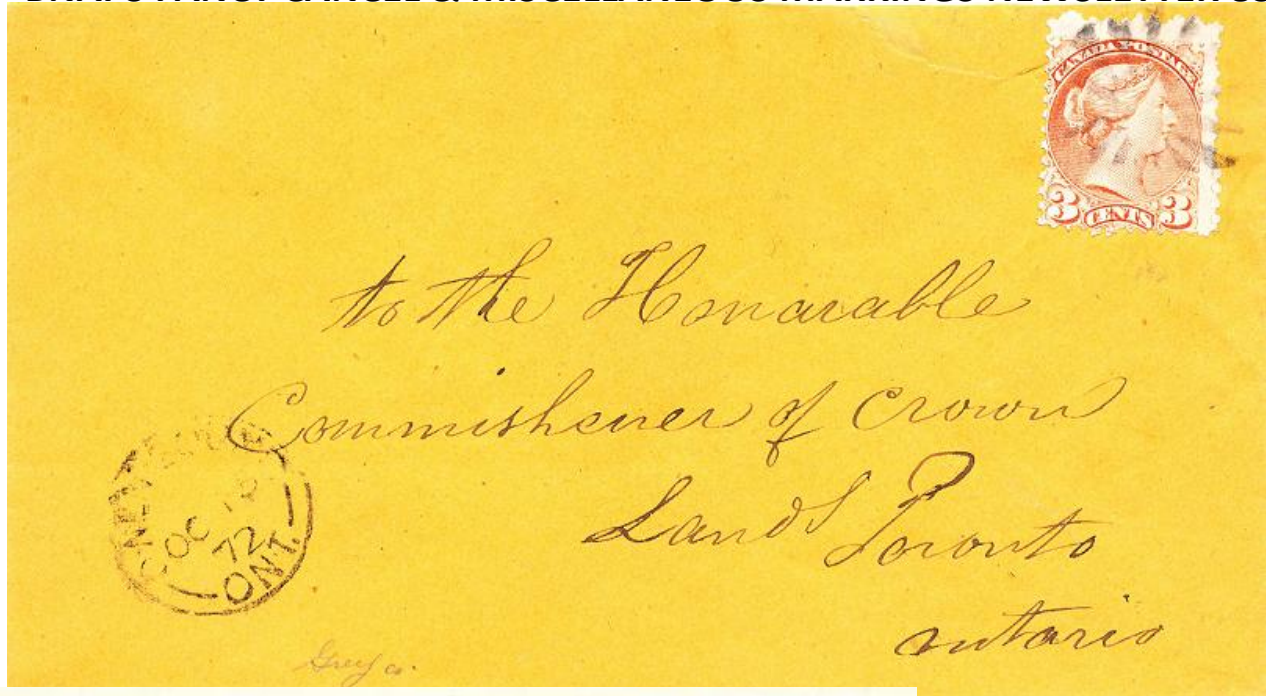 CANADA POSTAGE
3 CENTS 3
to the Honarable
Commishener of Crown
Lands Toronto
ontario
OC
72
ONT.
Grey co.